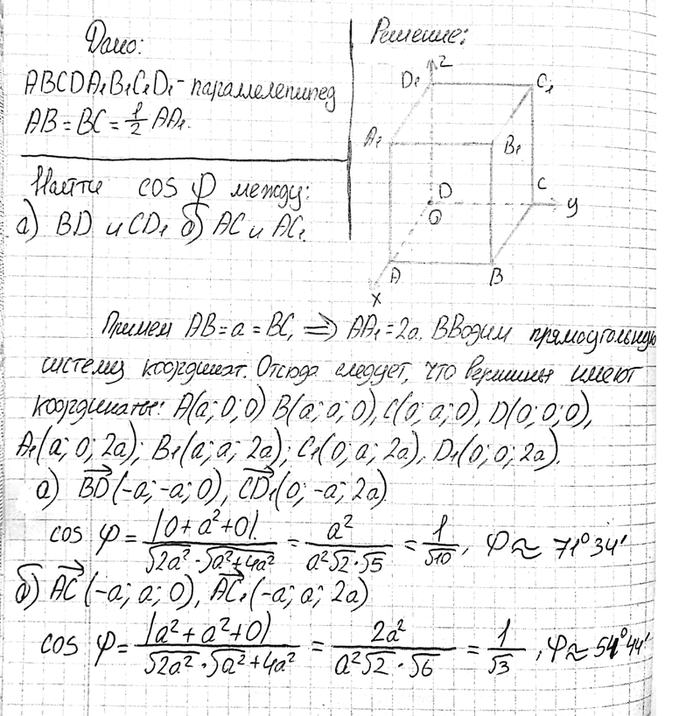 Дано:
ABCDA₁B₁C₁D₁ - параллелепипед
AB = BC = 1/2 AA₁.
Найти cos φ между:
а) BD и CD₁ б) AC и AC₁
Решение:
z
D₁ C₁
A₁ B₁
D C
O y
A B
x
Примем AB = a = BC, ⇒ AA₁ = 2a. ВВодим прямоугольную
систему координат. Отсюда следует, что вершины имеют
координаты: A(a; 0; 0) B(a; a; 0), C(0; a; 0), D(0; 0; 0),
A₁(a; 0; 2a); B₁(a; a; 2a); C₁(0; a; 2a), D₁(0; 0; 2a).
а) BD→(-a; -a; 0), CD₁→(0; -a; 2a)
cos φ = |0 + a² + 0| / (√2a² · √a² + 4a²) = a² / (a²√2 · √5) = 1/√10, φ ≈ 71°34'
б) AC→(-a; a; 0), AC₁→(-a; a; 2a)
cos φ = |a² + a² + 0| / (√2a² · √a² + 4a²) = 2a² / (a²√2 · √6) = 1/√3, φ ≈ 54°44'